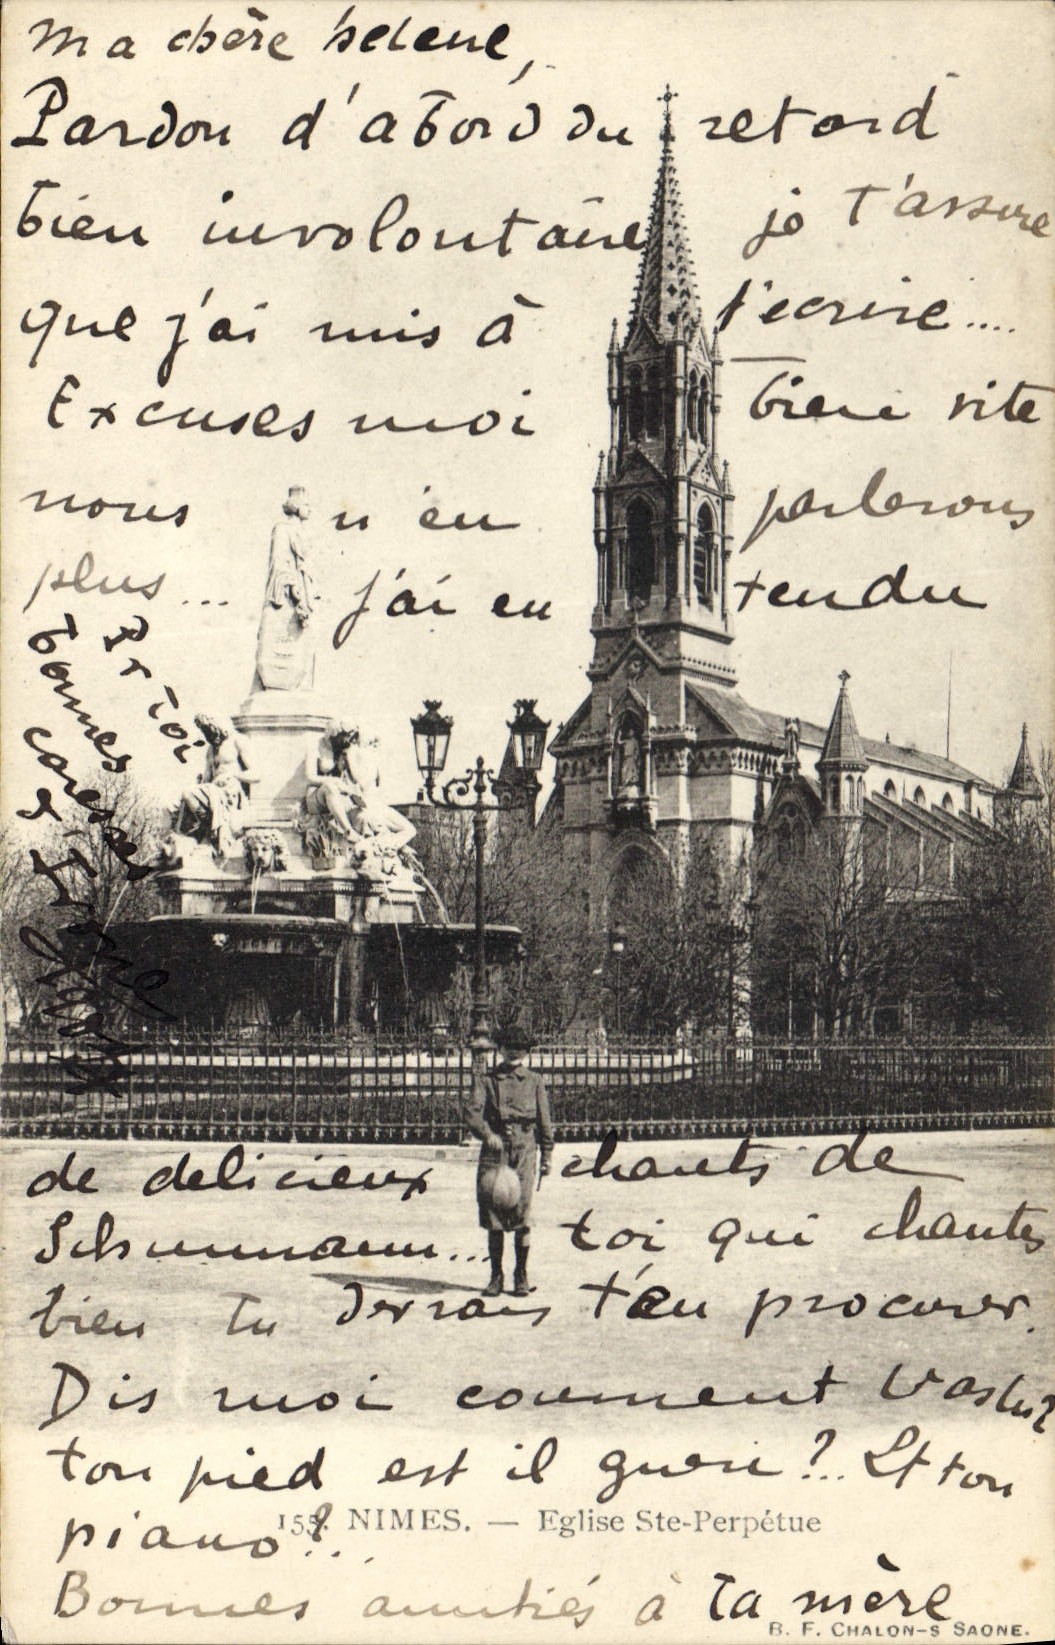 Ma chère helene,
Pardon d'abord du retard
bien involontaire je t'assure
que j'ai mis à t'ecrire....
Excuses moi bien vite
nous n'en parlerons
plus... j'ai entendu
de delicieux chants de
Schumann... toi qui chantes
bien tu devrais t'en procurer.
Dis moi comment vas tu?
ton pied est il gueri?.. Et ton
piano?...
155. NIMES. — Eglise Ste-Perpétue
Bonnes amitiés à ta mère
B. F. CHALON-S SAONE.
Pr toi
bonnes caresses
d'Yvonne